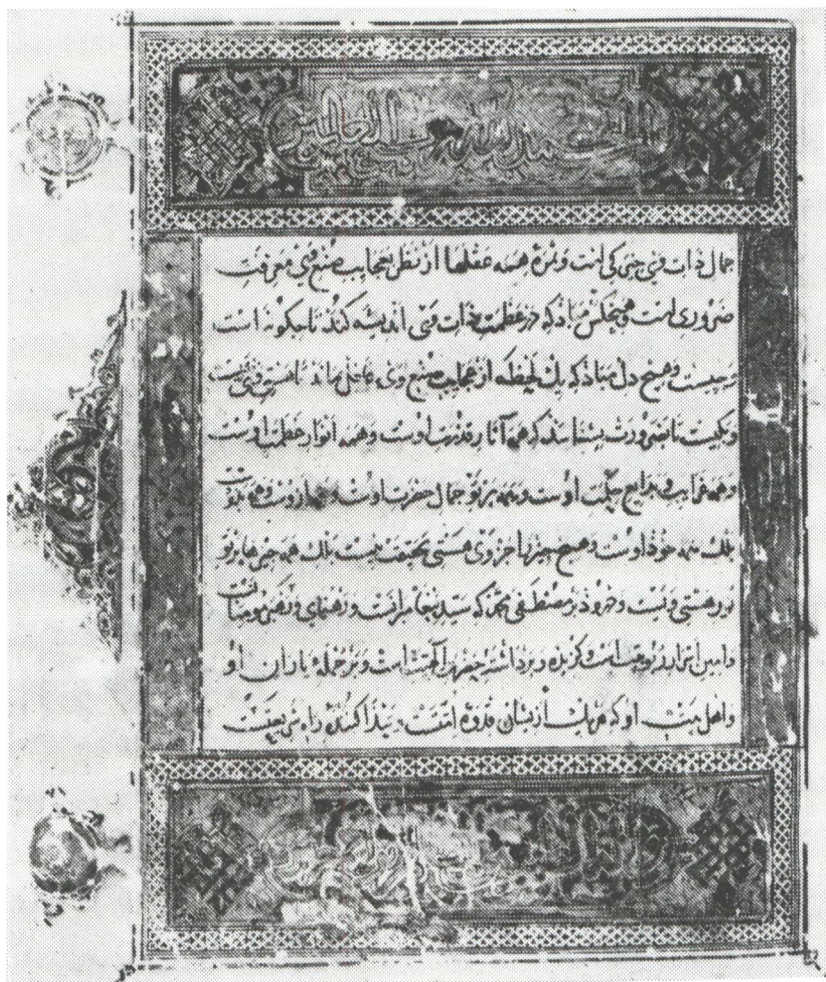 الحمد لله رب العالمين
جمال ذات وی حیرتست وثمرهٔ همه عقلها از نظر بعجایب صنع وی معرفت
ضروری است وهیچکس مباذ که در عظمت ذات وی اندیشه کند تا چگونه است
وچیست وهیچ دل مباذ که یک لحظه از عجایب صنع وی غافل ماند تا هستی وی بچیست
وبکیست تا بضرورت بشناسد که همه آثار قدرت اوست وهمه انوار عظمت اوست
وهمه غرایب وبدایع حکمت اوست وهمه پرتو جمال حضرت اوست وهمه ازوست وهمه بدوست
بلک همه خوذ اوست وهیچ چیز را جز وی هستی بحقیقت نیست بلک همه چیزها پرتو
نور هستی ویست ودروذ بر مصطفی محمد که سید پیغامبرانست وراهنمای وراهبر مومنانست
وامین اسرار ربوبیت است وگزیده وبرداشته حضرت الهیتست وبر جملهٔ یاران او
واهل بیت او که هر یک از یشان قدوه امتست وپیذا کننده راه شریعتست